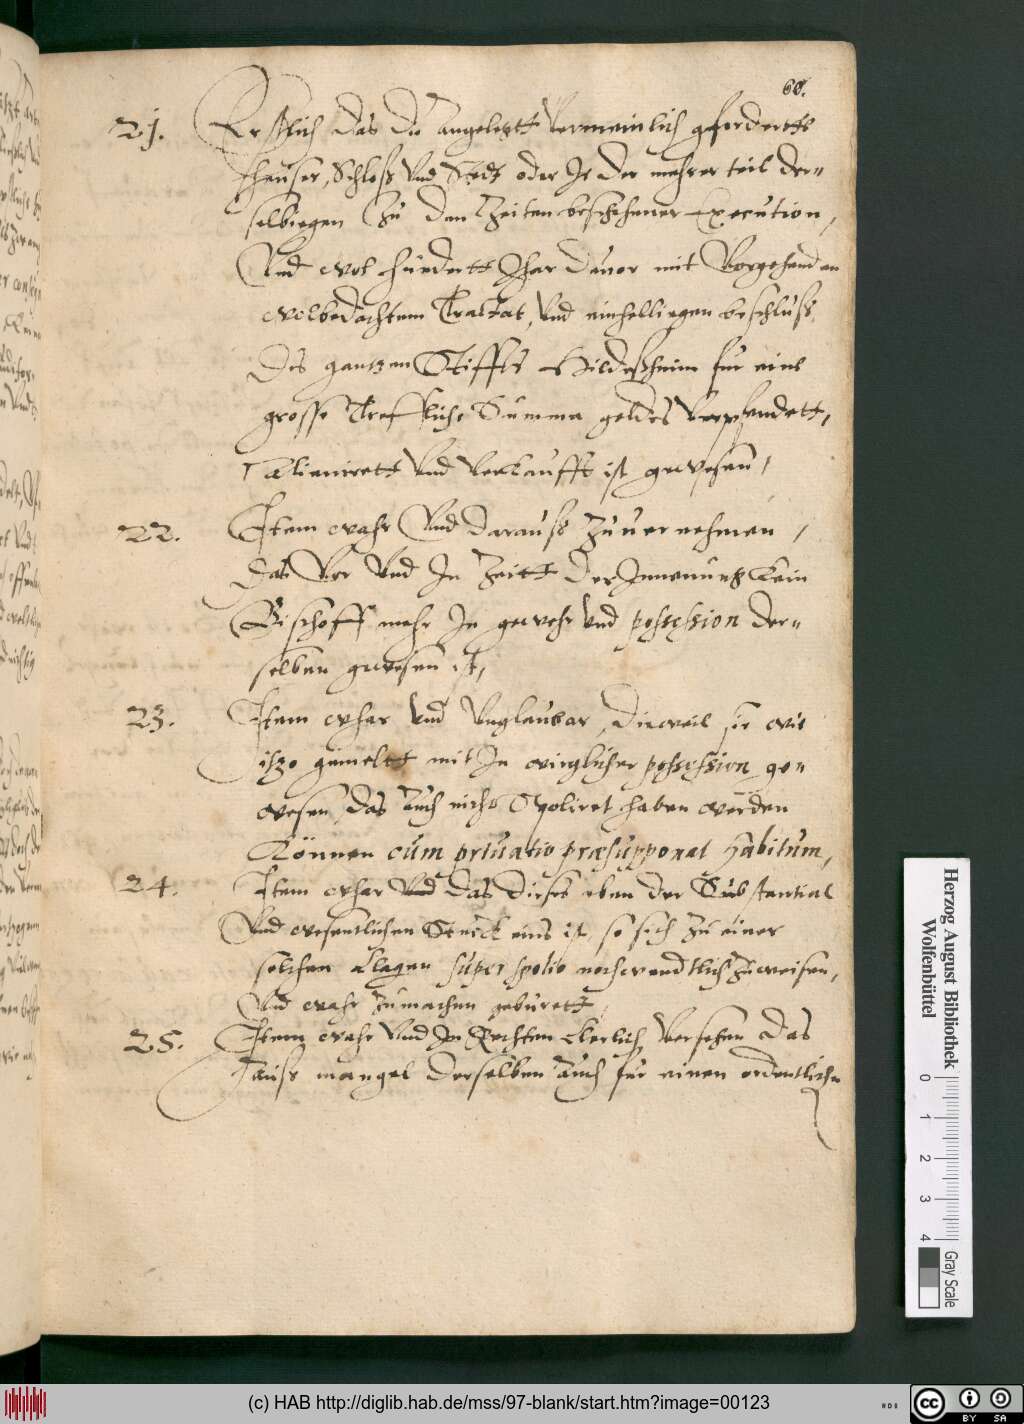 60.
21. Erstlich das die angeletztt vermeinlich gfordertts
heuser, Schloss und Stedt oder Je der mehrer teil der=
selbiegen zu den Zeiten beschehener Execution,
Und wol hundertt Jhar duuor mit Vorgehenden
wolbedachtem Tractat, und einhelliegen beschluss
Des gantzen Stiffts Hildesheim fur eine
grosse Treffliche Summa geldes verpfendett,
Alienirett und verkaufft ist gewesen,
22. Item wahr Und darauss zuuernehmen,
das Vor und In Zeitt der Innemung kein
Bischoff mehr In gewehr und possession der=
selben gewesen ist,
23. Item whar und unglaubar, Dieweil sie wie
itzo gemeltt mit In wirglicher possession ge=
wesen, das Auch nicht Spoliret haben werden
Können cum priuatio præsupponat habitum,
24. Item whar und das dieses eben der Substantial
Und wesentlichen Stück eins ist, so sich zu einer
solchen Clagen super spolio nothwendtlich zuweisen,
Und wahr zumachen geburett,
25. Item wahr Und In Rechten klerlich versehen das
auss mangel derselben Auch fur einen ordentlichen
Herzog August Bibliothek
Wolfenbüttel
0 1 2 3 4
Gray Scale
(c) HAB http://diglib.hab.de/mss/97-blank/start.htm?image=00123
cc BY SA